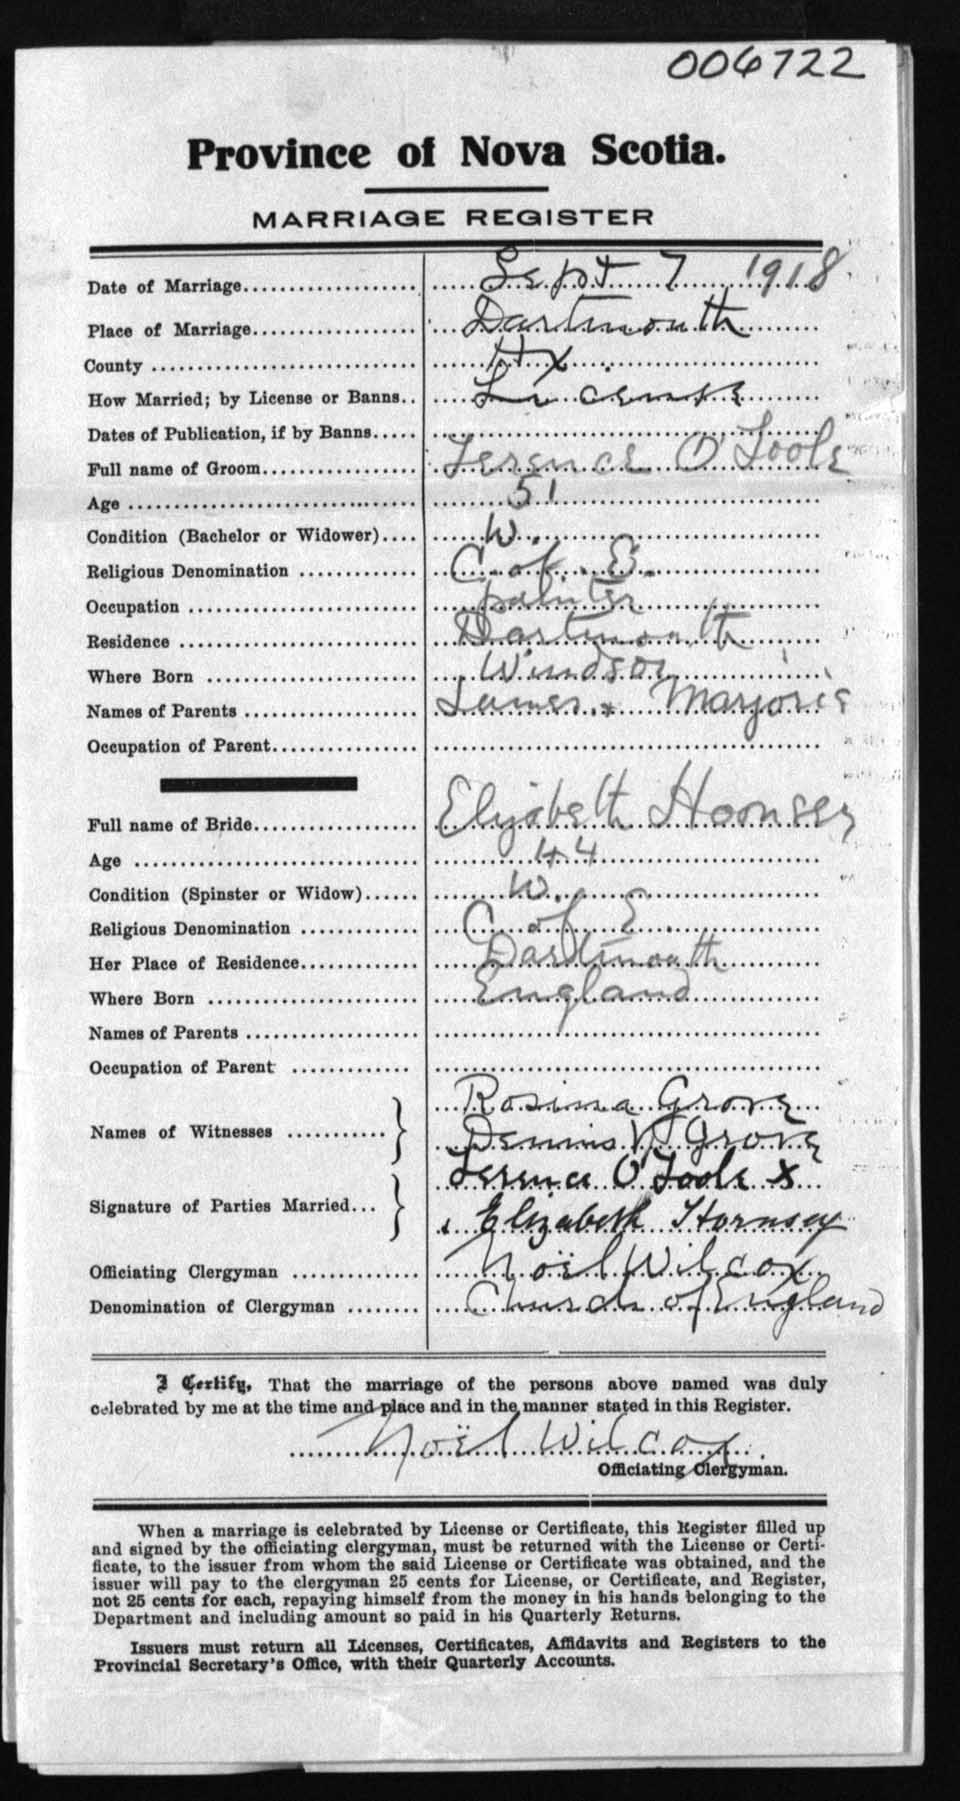 006722
Province of Nova Scotia.
MARRIAGE REGISTER
Date of Marriage Sept 7 1918
Place of Marriage Dartmouth
County Hx
How Married; by License or Banns License
Dates of Publication, if by Banns
Full name of Groom Terence O'Toole
Age 51
Condition (Bachelor or Widower) W.
Religious Denomination C. of. E.
Occupation painter
Residence Dartmouth
Where Born Windsor
Names of Parents James & Marjorie
Occupation of Parent
Full name of Bride Elizabeth Hoonsey
Age 44
Condition (Spinster or Widow) W.
Religious Denomination C. of E.
Her Place of Residence Dartmouth
Where Born England
Names of Parents
Occupation of Parent
Rosina Grove
Names of Witnesses Dennis V Grove
Terence O'Toole x
Signature of Parties Married Elizabeth Hornsey
Officiating Clergyman Noël Wilcox
Denomination of Clergyman Church of England
I Certify, That the marriage of the persons above named was duly
celebrated by me at the time and place and in the manner stated in this Register.
Noël Wilcox
Officiating Clergyman.
When a marriage is celebrated by License or Certificate, this Register filled up
and signed by the officiating clergyman, must be returned with the License or Certi-
ficate, to the issuer from whom the said License or Certificate was obtained, and the
issuer will pay to the clergyman 25 cents for License, or Certificate, and Register,
not 25 cents for each, repaying himself from the money in his hands belonging to the
Department and including amount so paid in his Quarterly Returns.
Issuers must return all Licenses, Certificates, Affidavits and Registers to the
Provincial Secretary's Office, with their Quarterly Accounts.